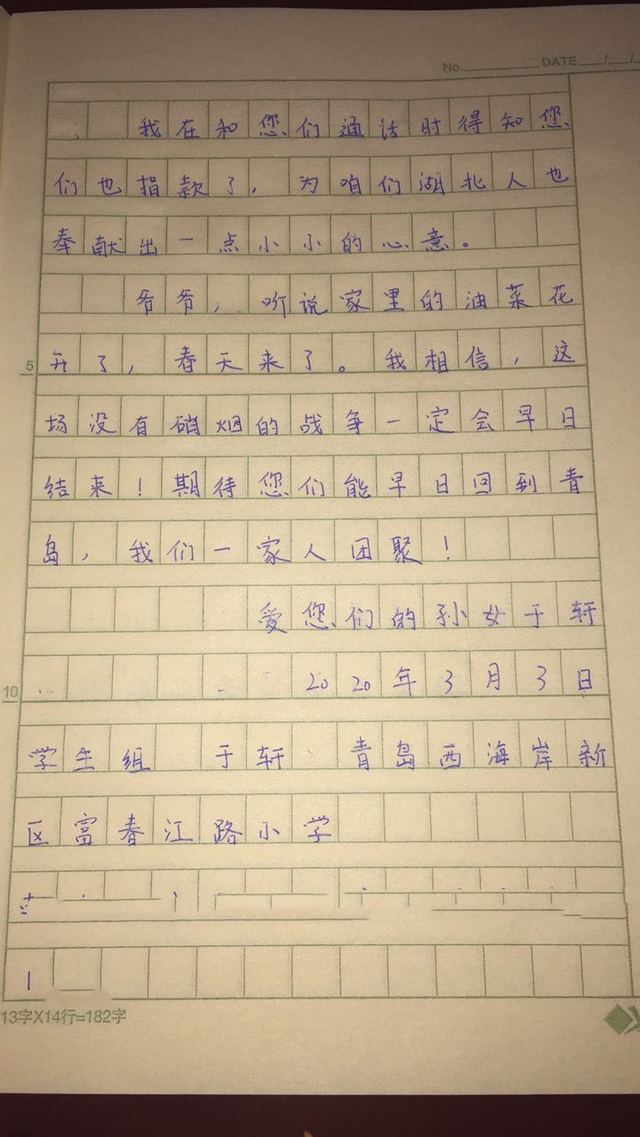 No. DATE / /
我在和您们通话时得知您
们也捐款了，为咱们湖北人也
奉献出一点小小的心意。
爷爷，听说家里的油菜花
5 开了，春天来了。我相信，这
场没有硝烟的战争一定会早日
结束！期待您们能早日回到青
岛，我们一家人团聚！
爱您们的孙女于轩
10 2020年3月3日
学生组 于轩 青岛西海岸新
区富春江路小学
13字X14行=182字